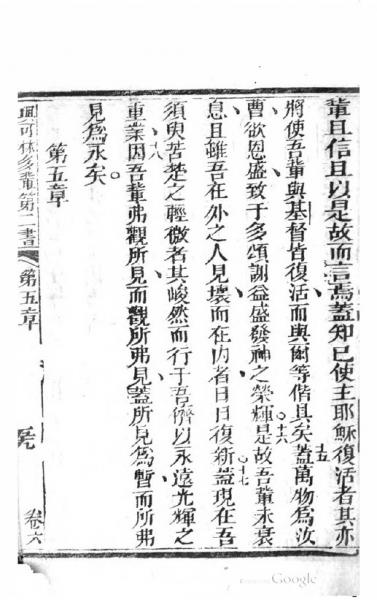 輩且信且以是故而言焉蓋知已使主耶穌復活者其亦
將使吾輩與基督皆復活而與爾等偕具矣五蓋萬物為汝
曹欲恩盛致于多頌謝益盛發神之榮輝。十六是故吾輩未衰
息且雖吾在外之人見壞而在内者日日復新。十七蓋現在吾
須臾苦楚之輕微者其峻然而行于吾儕以永遠光輝之
重業十八因吾輩弗觀所見而觀所弗見蓋所見為暫而所弗
見為永矣。
第五章
可林多輩第二書 第五章 卷六
Google